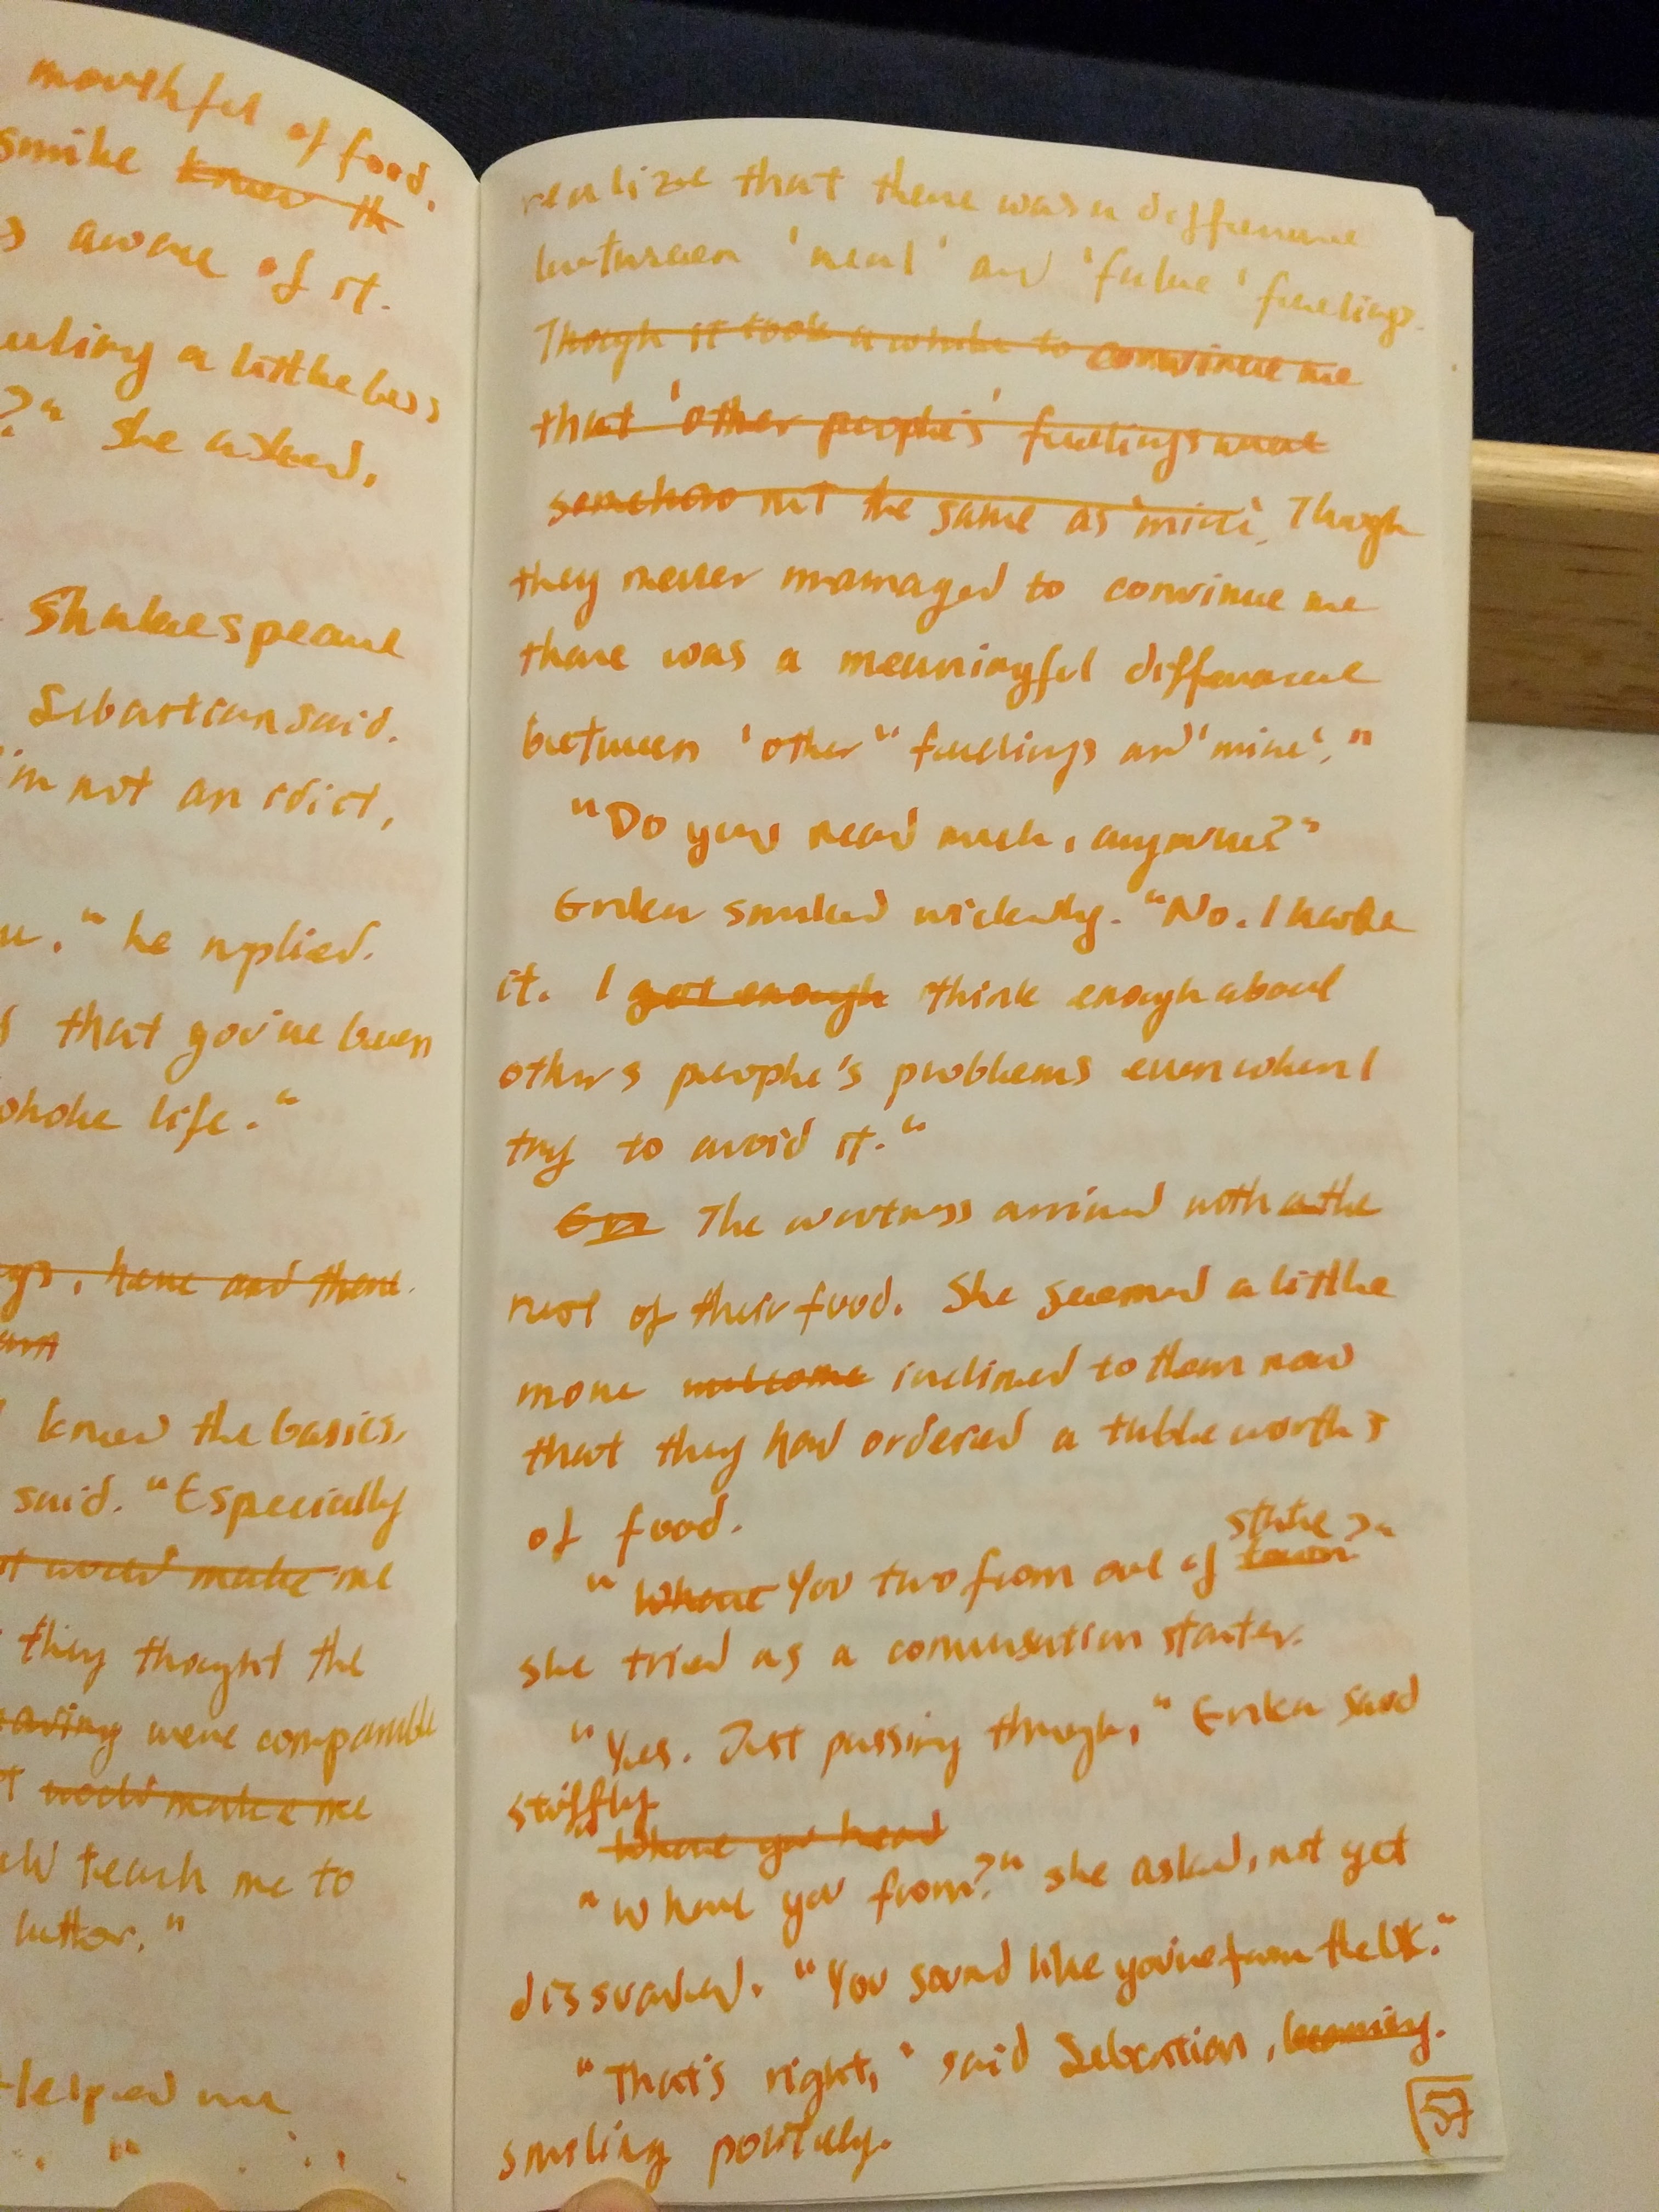 mouthful of food.
smile knew th
s aware of it.
eeling a little less
?" She asked,
Shakespeare
Sebastian said.
I'm not an idiot,
he replied.
that you've been
whole life."
gs, here and there.
knew the basics,
said. "Especially
t would make me
they thought the
were comparable
t would make me
teach me to
better."
Helped me
realize that there was a difference
between 'real' and 'false' feelings.
Though it took a while to convince me
that 'other people's' feelings were
somehow not the same as 'mine'. Though
they never managed to convince me
there was a meaningful difference
between 'other" feelings and 'mine'."
"Do you read much, anymore?"
Erika smiled widely. "No. I hate
it. I got enough think enough about
others people's problems even when I
try to avoid it."
Eri The waitress arrived with a the
rest of their food. She seemed a little
more welcome inclined to them now
that they had ordered a table worth's
of food.
state?"
"Where You two from out of town"
she tried as a conversation starter.
"Yes. Just passing through," Erika said
stiffly.
"Where you head
"Where you from?" she asked, not yet
dissuaded. "You sound like you're from the UK."
"That's right," said Sebastian, beaming.
smiling politely.
57